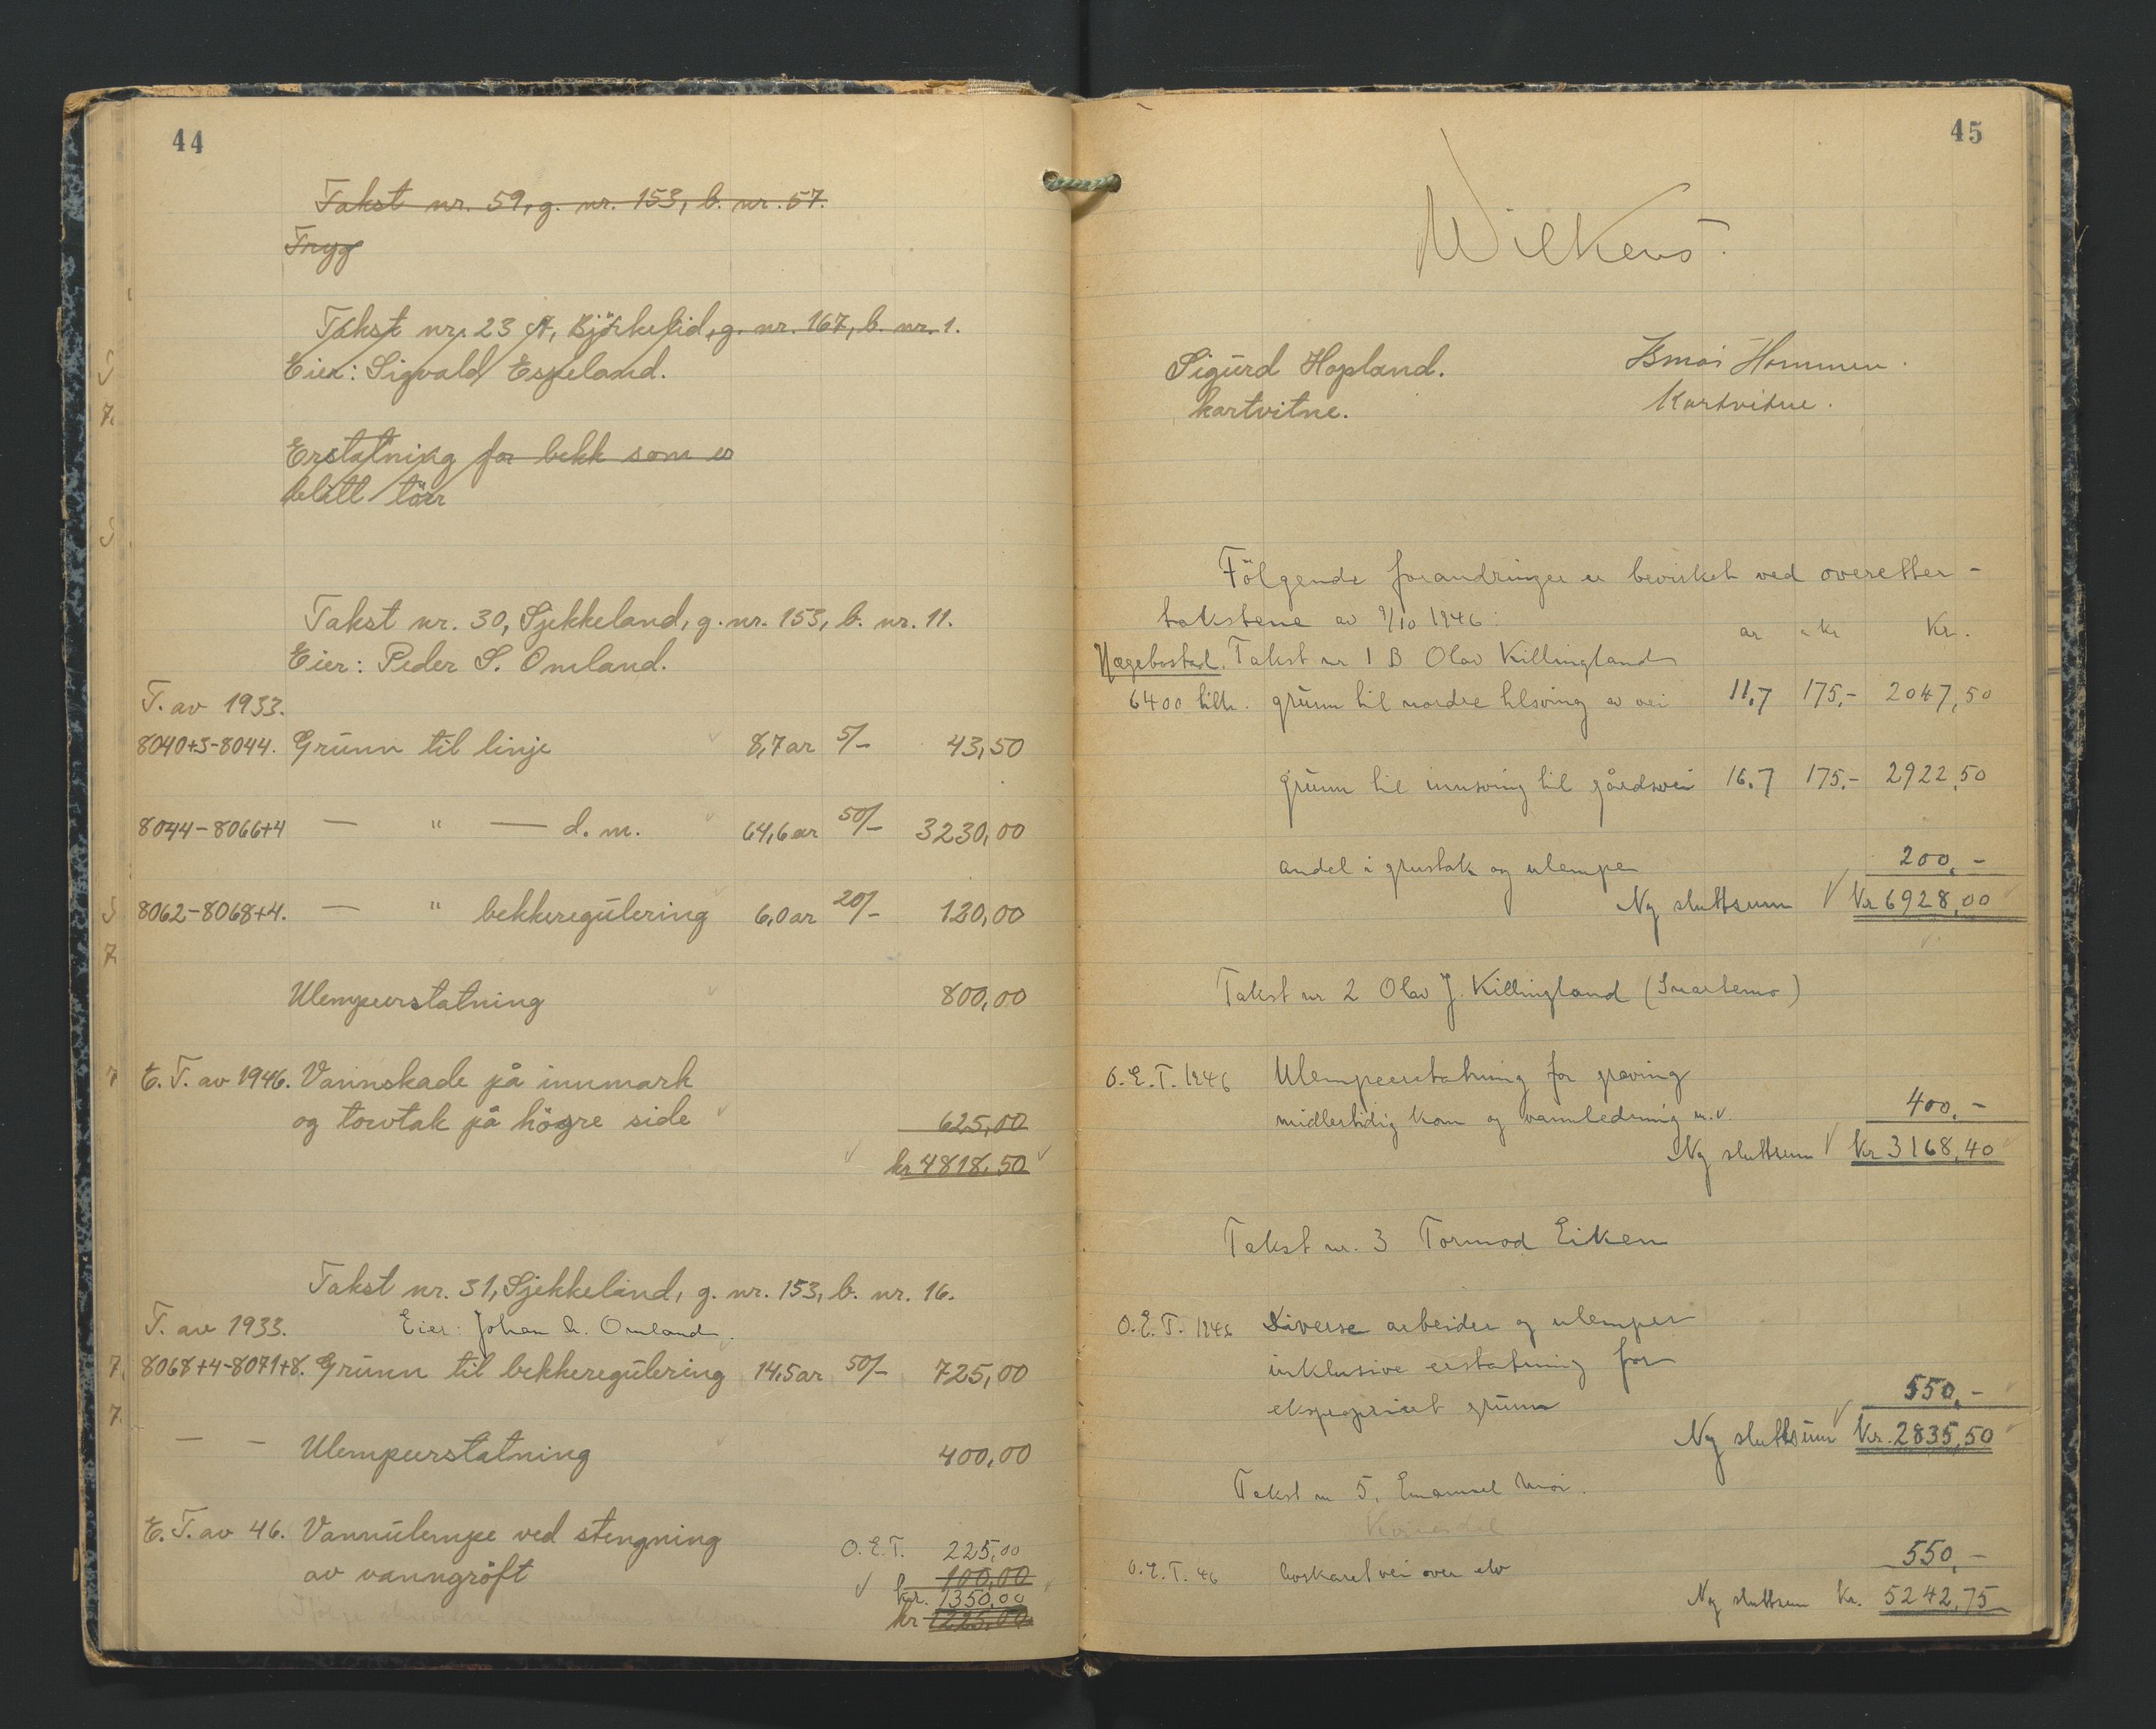 44
Takst nr. 59, g. nr. 153, b. nr. 57.
Tryg
Takst nr. 23 A, Björkelid, g. nr. 167, b. nr. 1.
Eier: Sigvald Espeland.
Erstatning for bekk som er
blitt törr
Takst nr. 30, Sjekkeland, g. nr. 153, b. nr. 11.
Eier: Peder S. Omland.
T. av 1933.
8040+3-8044. Grunn til linje 8,7 ar 5/- 43,50
8044-8066+4 — " — d. m. 64,6 ar 50/- 3230,00
8062-8068+4. — " bekkeregulering 6,0 ar 20/- 120,00
Ulempeerstatning 800,00
E. T. av 1946. Vannskade på innmark
og torvtak på högre side 625,00
kr 4818,50
Takst nr. 31, Sjekkeland, g. nr. 153, b. nr. 16.
T. av 1933. Eier: Johan A. Omland.
8068+4-8071+8. Grunn til bekkeregulering 14,5 ar 50/- 725,00
— — Ulempeerstatning 400,00
E. T. av 46. Vannulempe ved stengning
av vanngröft O.E.T. 225,00
100,00
kr. 1350,00
kr 1225,00
45
Wilkens.
Sigurd Hopland. Hommen.
kartvitne. Kartvitne.
Fölgende forandringer er bevirket ved overetter-
takstene av 9/10 1946:
ar a kr Kr.
Hægebostad. Takst nr 1 B Olav Killingland
6400 grunn til nordre tilsving av vei 11,7 175,- 2047,50
grunn til innsving til gårdsvei 16,7 175,- 2922,50
andel i grustak og ulempe 200,-
Ny sluttsum Kr 6928,00
Takst nr 2 Olav J. Killingland (Snartemo)
O.E.T. 1946 Ulempeerstatning for graving
midlertidig kom og vannledning m.v. 400,-
Ny sluttsum Kr 3168,40
Takst nr. 3 Tormod Eiken
O.E.T. 1946 Diverse arbeider og ulemper
inklusive erstatning for
ekspropriert grunn 550,-
Ny sluttsum Kr. 2835,50
Takst nr 5, Emanuel Moi.
Kvinesdal
O.E.T. 46 vei over elv 550,-
Ny sluttsum Kr. 5242,75